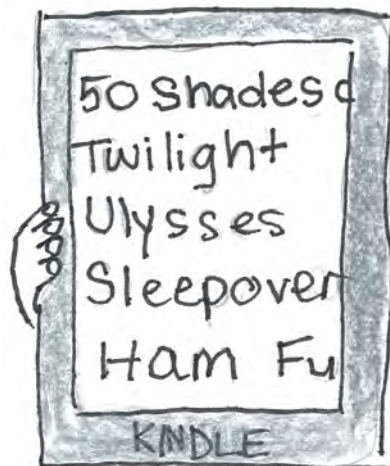 50 Shades o
Twilight
Ulysses
Sleepover
Ham Fu
KINDLE